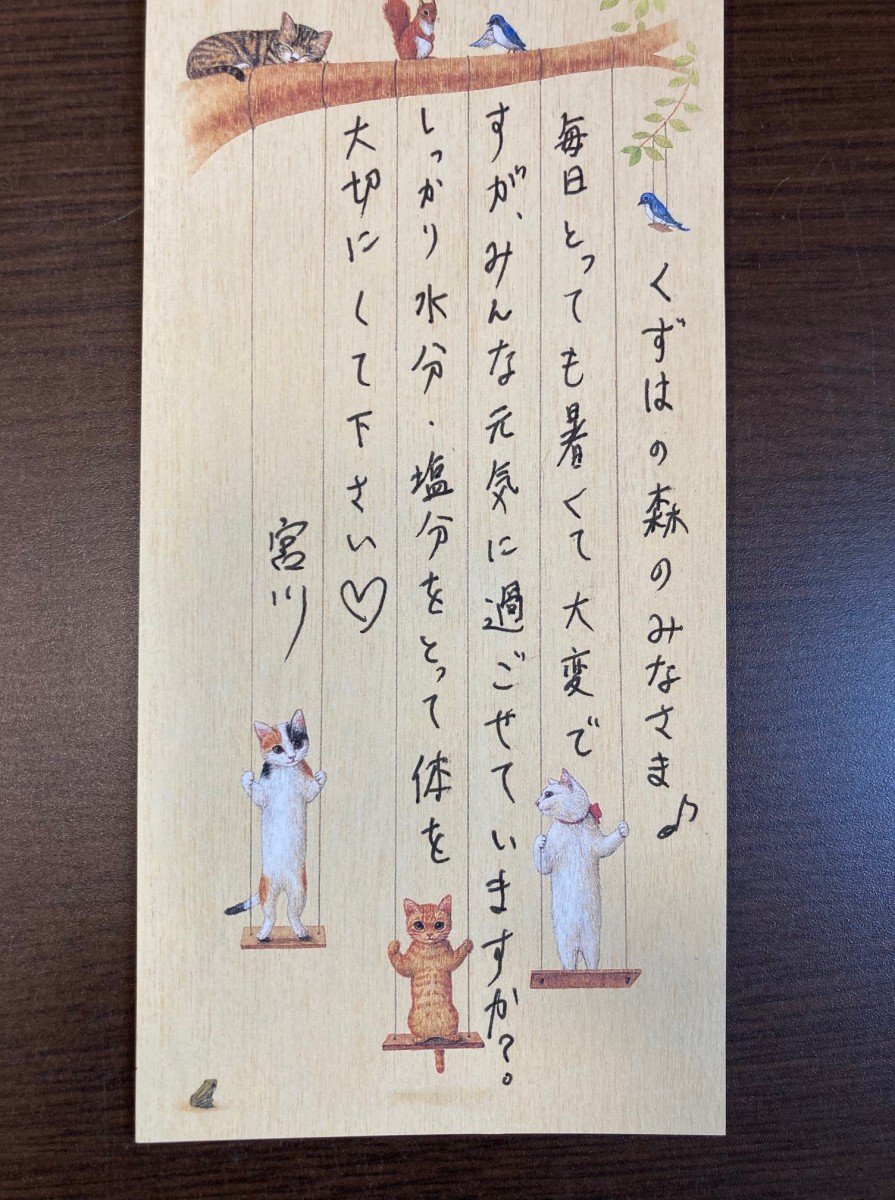 くずはの森のみなさま♪
毎日とっても暑くて大変で
すが、みんな元気に過ごせていますか？。
しっかり水分・塩分をとって体を
大切にして下さい♡
宮川